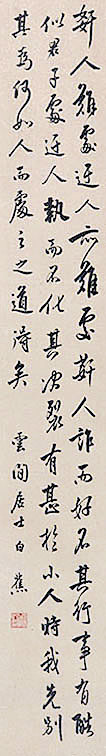 奸人難處迂人亦難處奸人詐而好名其行事有酷
似君子處迂人執而不化其決裂有甚於小人時我先別
其為何如人而處之之道得矣 雲間居士白蕉